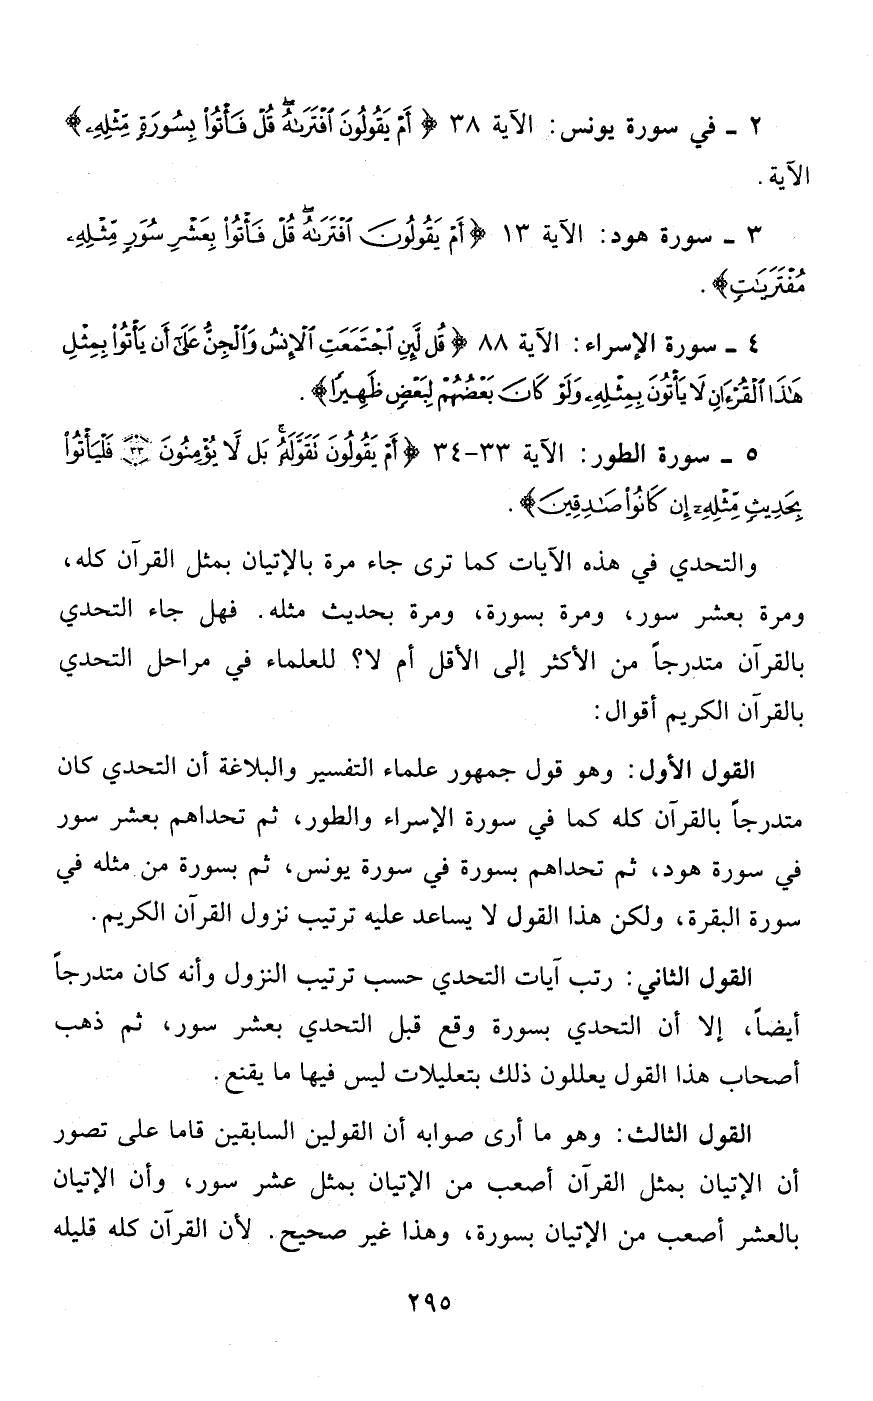 ٢ ـ في سورة يونس: الآية ٣٨ ﴿أَمْ يَقُولُونَ ٱفْتَرَىٰهُۖ قُلْ فَأْتُوا۟ بِسُورَةٍ مِّثْلِهِۦ﴾
الآية.
٣ ـ سورة هود: الآية ١٣ ﴿أَمْ يَقُولُونَ ٱفْتَرَىٰهُۖ قُلْ فَأْتُوا۟ بِعَشْرِ سُوَرٍ مِّثْلِهِۦ
مُفْتَرَيَٰتٍ﴾.
٤ ـ سورة الإسراء: الآية ٨٨ ﴿قُل لَّئِنِ ٱجْتَمَعَتِ ٱلْإِنسُ وَٱلْجِنُّ عَلَىٰٓ أَن يَأْتُوا۟ بِمِثْلِ
هَٰذَا ٱلْقُرْءَانِ لَا يَأْتُونَ بِمِثْلِهِۦ وَلَوْ كَانَ بَعْضُهُمْ لِبَعْضٍ ظَهِيرًا﴾.
٥ ـ سورة الطور: الآية ٣٣-٣٤ ﴿أَمْ يَقُولُونَ تَقَوَّلَهُۥۚ بَل لَّا يُؤْمِنُونَ ٣٣ فَلْيَأْتُوا۟
بِحَدِيثٍ مِّثْلِهِۦٓ إِن كَانُوا۟ صَٰدِقِينَ﴾.
والتحدي في هذه الآيات كما ترى جاء مرة بالإتيان بمثل القرآن كله،
ومرة بعشر سور، ومرة بسورة، ومرة بحديث مثله. فهل جاء التحدي
بالقرآن متدرجاً من الأكثر إلى الأقل أم لا؟ للعلماء في مراحل التحدي
بالقرآن الكريم أقوال:
القول الأول: وهو قول جمهور علماء التفسير والبلاغة أن التحدي كان
متدرجاً بالقرآن كله كما في سورة الإسراء والطور، ثم تحداهم بعشر سور
في سورة هود، ثم تحداهم بسورة في سورة يونس، ثم بسورة من مثله في
سورة البقرة، ولكن هذا القول لا يساعد عليه ترتيب نزول القرآن الكريم.
القول الثاني: رتب آيات التحدي حسب ترتيب النزول وأنه كان متدرجاً
أيضاً، إلا أن التحدي بسورة وقع قبل التحدي بعشر سور، ثم ذهب
أصحاب هذا القول يعللون ذلك بتعليلات ليس فيها ما يقنع.
القول الثالث: وهو ما أرى صوابه أن القولين السابقين قاما على تصور
أن الإتيان بمثل القرآن أصعب من الإتيان بمثل عشر سور، وأن الإتيان
بالعشر أصعب من الإتيان بسورة، وهذا غير صحيح. لأن القرآن كله قليله
٢٩٥